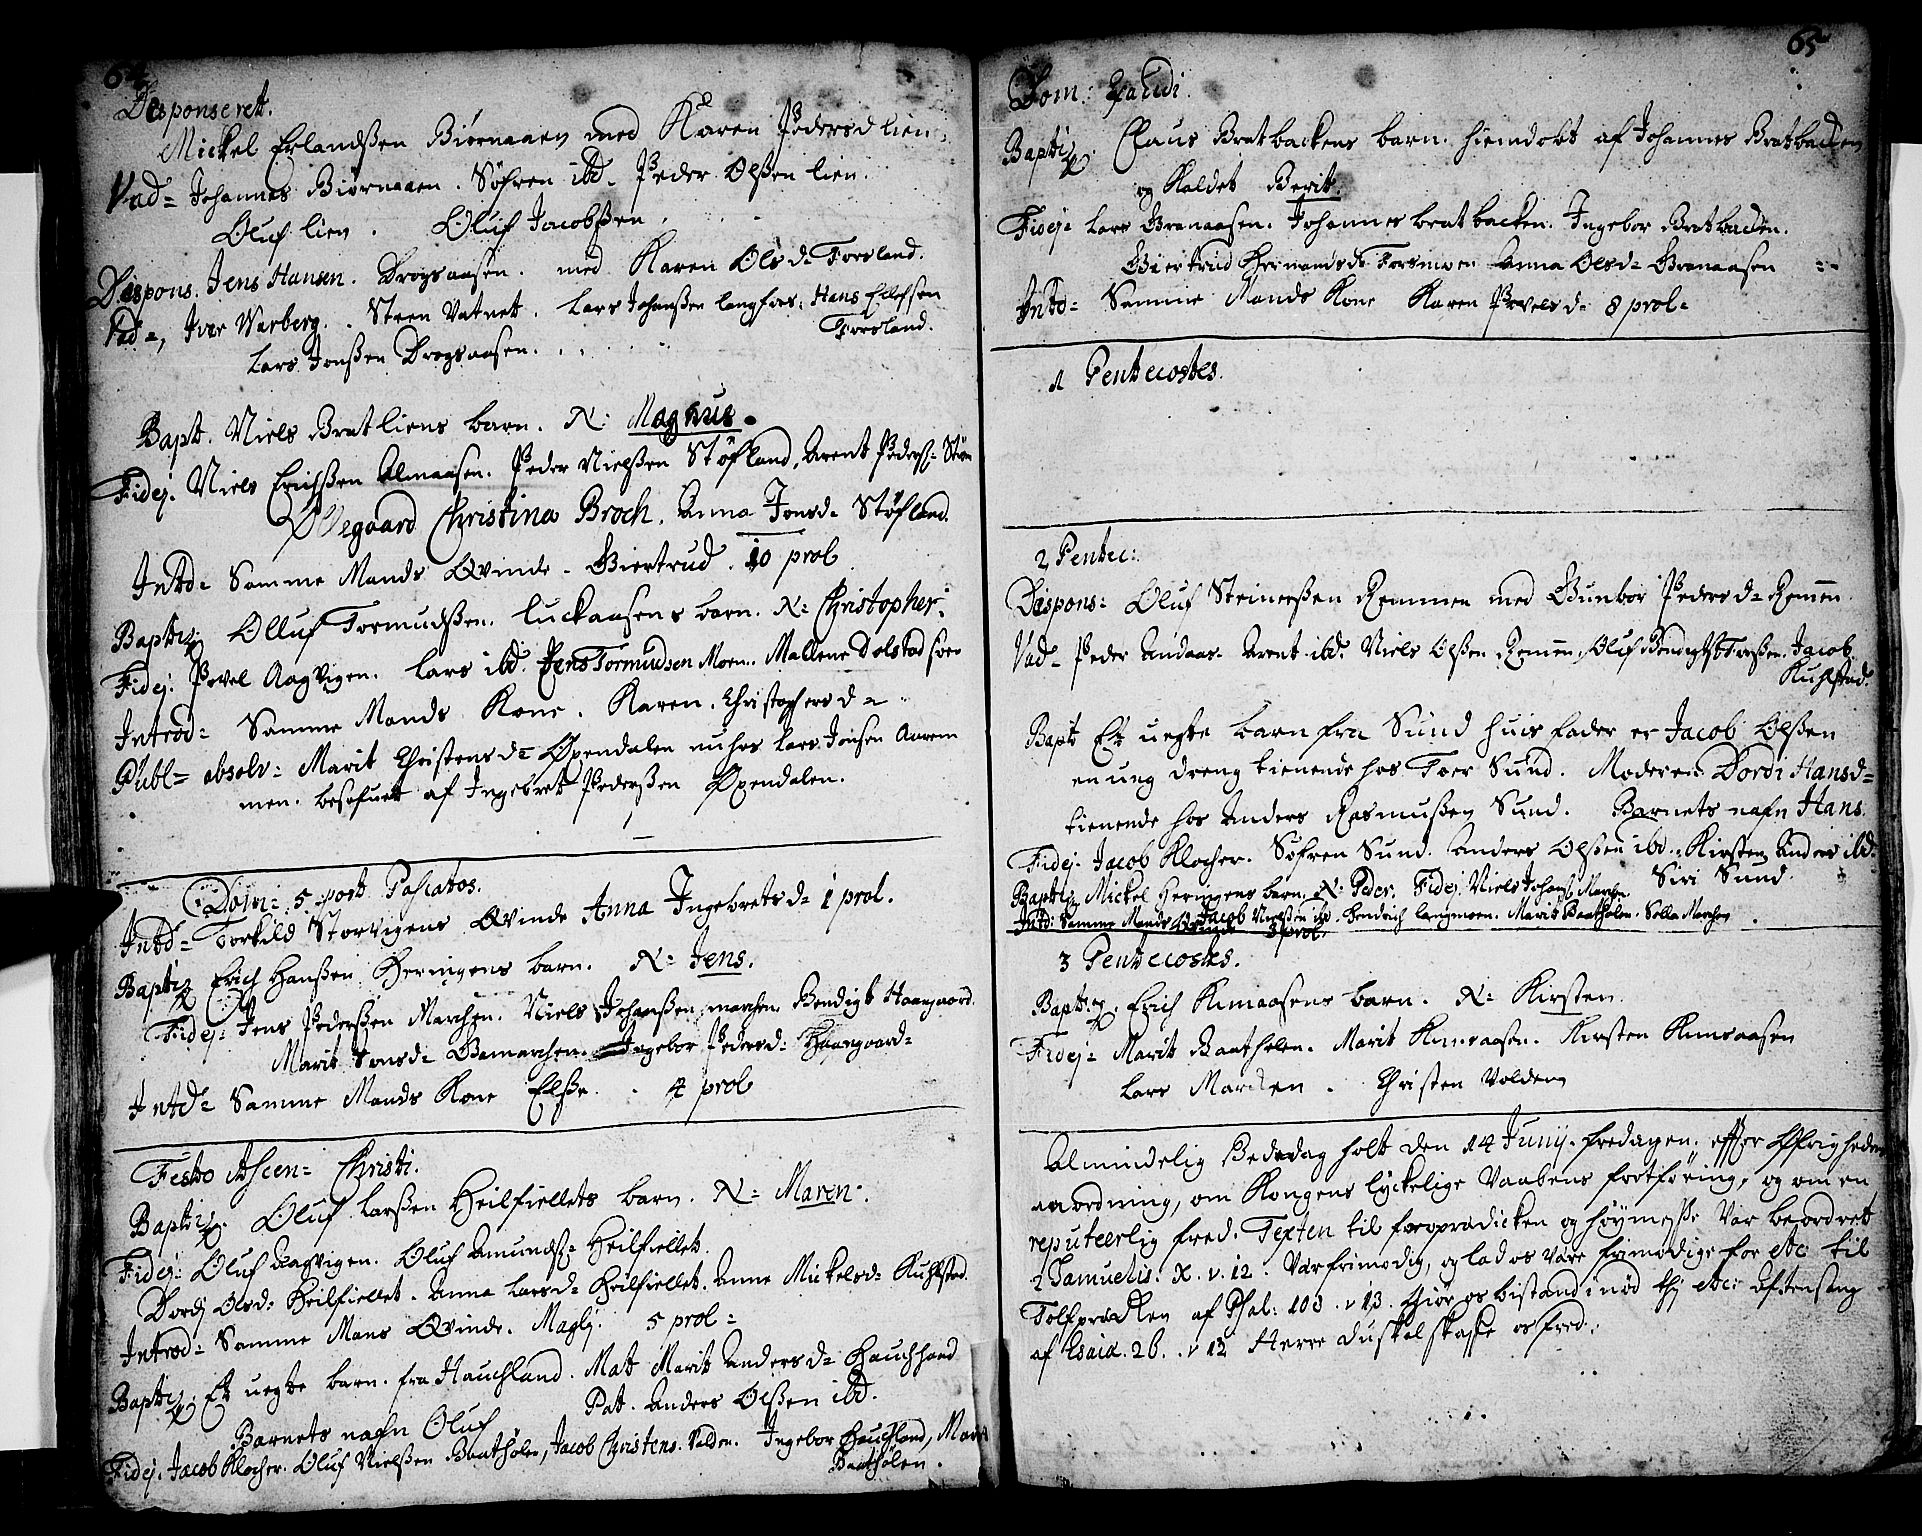 64
Desponseret.
Mickel Erlandßen Biørnaaen med Karen Pedersd lien.
Vad= Johannes Biørnaaen. Søfren ibd. Peder Olßen lien.
Oluf lien. Oluf Jacobßen.
Despons. Jens Hansen. Drogsaasen. med Karen Olsd= Forsland.
Vad=, Iver Warberg. Steen Vatnet. Lars Johanßen langfors. Hans Ellefsen
Forsland.
Lars Jonßen Drogsaasen.
Bapt. Niels Bratliens barn. N: Magnus.
Fidej. Niels Erichßen Almaasen. Peder Nielßen Støfland, Arent Peders= Støfn
Øllegaard Christina Broch. Anna Jensd= Støfland.
Intd= Samme Mands Qvinde. Giertrud. 10 prol
Baptiz. Olluf Tormudßen. luckaasens barn. N: Christopher.
Fidej. Povel Aagvigen. Lars ibd. Jens Tormudsen Moen. Mallene Dolstad
Introd= Samme Mands Kone. Karen. Christophersd=
Publ= absolv: Marit Christensd= Øpendalen nu hos Lars Jonsen Aarem
men. besofuet af Ingebret Pederßen Øpendalen.
Dom= 5 post Pascatos.
Intd= Torkild Storvigens Qvinde Anna Ingebretsd= 1 prol.
Baptiz Erich Hanßen Heringens barn. N: Jens.
Fidej: Jens Pederßen Marchen. Niels Johanßen marchen. Bendigt Haangaard.
Marit Jonsd= Marchen. Ingebor Pedersd: Haangaard=
Intd= Samme Mands Kone Elße. 4 prol
Festo Ascen= Christi.
Baptiz. Oluf Larßen Heilfiellets barn. N= Maren.
Fidej: Oluf Aagvigen. Oluf Amunds= Heilfiellet.
Dordj Olsd= Heilfiellet. Anna Larsd= Heilfiellet. Anne Mickelsd= Kuhlstad.
Introd= Samme Mans Qvinde. Maglj. 5 prol=
Baptiz. Et uegte barn. fra Hauchland. Mat Marit Andersd= Hauchland
Pat. Anders Olßen ibd.
Barnets nafn Oluf
Fidej. Jacob Klocher. Oluf Nielßen Baatholen, Jacob Christens. Volden. Ingebor Hauchland, Marit
Baatholen.
65
Dom: Exaudi.
Baptiz. Claus Bratbackens barn. hiemdøbt af Johannes Bratbacken
og kaldet Berit.
Fidej= Lars Granaasen. Johannes bratbacken. Ingebor Bratbacken.
Giertrud Hermandsd= Forsmoen Anna Olsd= Granaasen
Intd= Samme Mands Kone Karen Povelsd= 8 prol=
1 Pentecostes.
2 Pentec:
Despons: Oluf Steinerßen Remmen med Gunbor Pedersd= Remen
Vad= Peder Andaas. Arent ibd. Niels Olßen Remen. Oluf Jacob
Kuhlstad.
Bapt Et uegte barn fra Sund huis fader er Jacob Olßen
en ung dreng tienende hos Toer Sund. Moderen Dordi Hansd=
tienende hos Anders Rasmußen Sund. Barnets nafn Hans.
Fidej. Jacob Klocher. Søfren Sund. Anders Olßen ibd. Kirsten Anders ibd.
Siri Sund
Baptiz Mickel Heringens barn. N: Peder. Fidej. Niels Johans Marchen.
Jacob Nielßen ibd. Hendrich langmoen. Marit Baatholen. Solla Marchen
Intd: Samme Mands Qvinde 3 prol.
3 Pentecostes.
Baptiz. Erich Kunsaasens barn. N= Kirsten.
Fidej= Marit Baatholen. Marit Kunsaasen. Kirsten Kunsaasen
Lars Marchen. Christen Volden
Almindelig Bededag holt den 14 Junij. fredagen. effter Øfrigheden
anordning, om Kongens lyckelige Vaabens fortføring, og om en
reputeerlig fred. Texten til froprædicken og høymesse var beordret
2 Samuelis: X. v. 12. Vær frimodig, og lad os være frimodige for etc: til
Tolfprædken af Psal: 103. v 13. Giør os bistand i nød thj etc: Aftensang
af Esaia. 26. v 12 Herre du skal skaffe os fred.